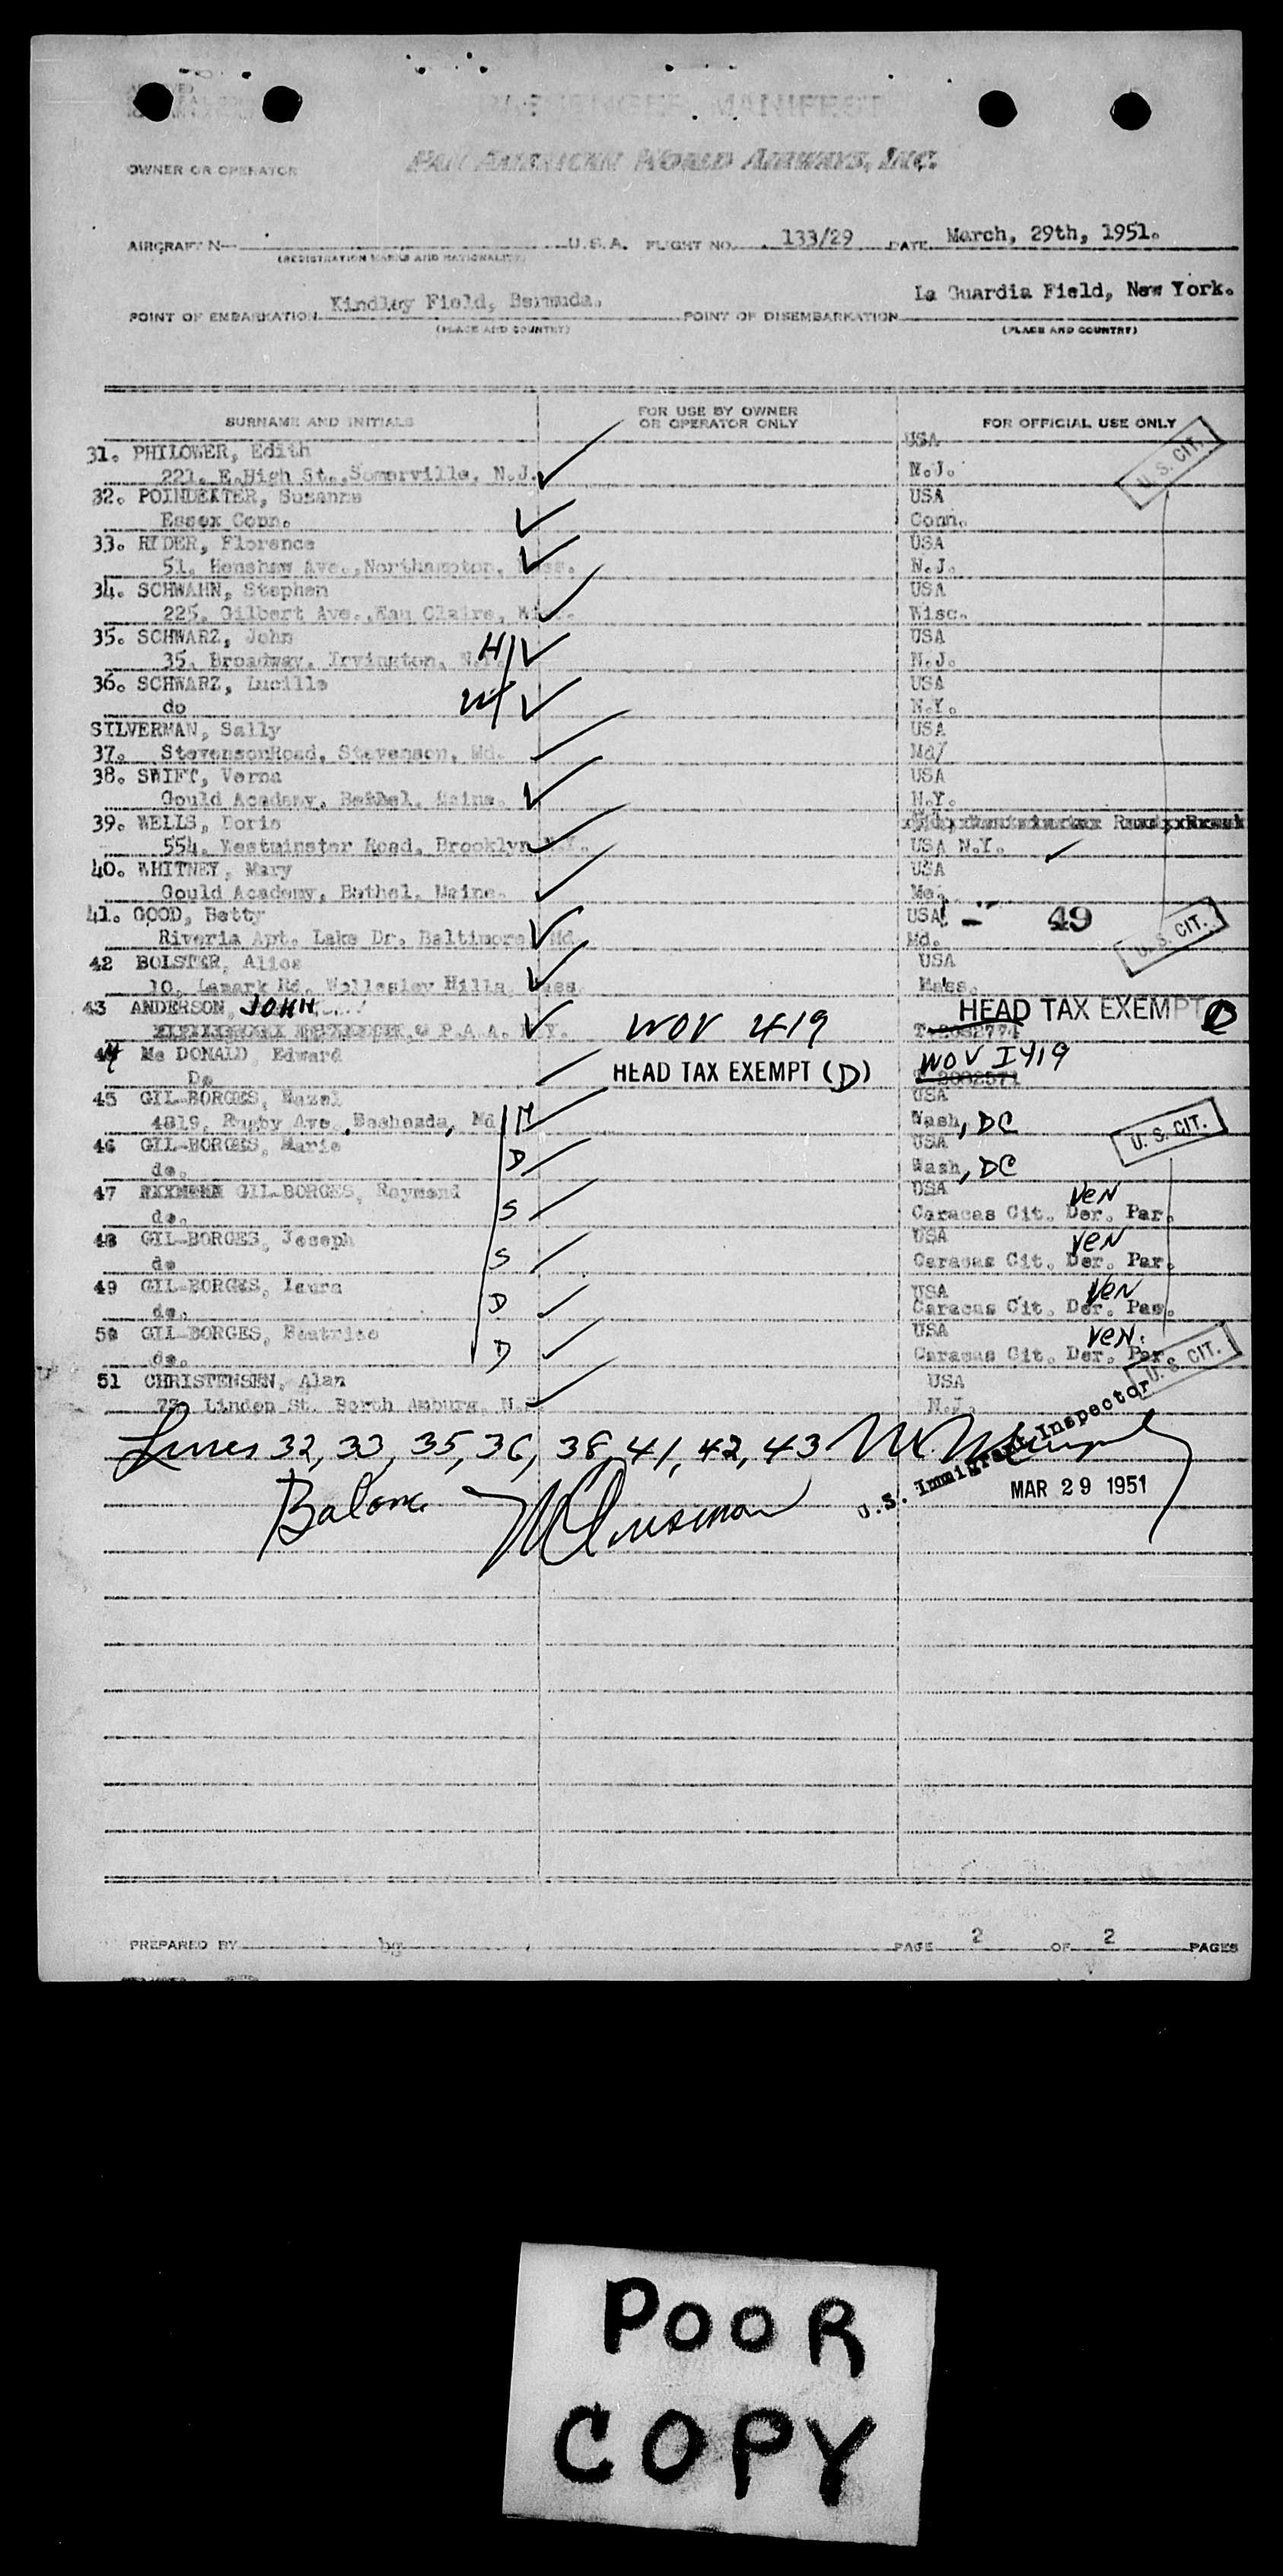 PASSENGER MANIFEST
OWNER OR OPERATOR
PAN AMERICAN WORLD AIRWAYS, INC.
AIRCRAFT N- U.S.A. FLIGHT NO. 133/29 DATE March, 29th, 1951.
(REGISTRATION MARKS AND NATIONALITY)
POINT OF EMBARKATION Kindley Field, Bermuda. POINT OF DISEMBARKATION La Guardia Field, New York.
(PLACE AND COUNTRY) (PLACE AND COUNTRY)
SURNAME AND INITIALS FOR USE BY OWNER OR OPERATOR ONLY FOR OFFICIAL USE ONLY
31. PHILOWER, Edith USA
221. E.High St.,Somerville, N.J. N.J. U.S. CIT.
32. POINDEXTER, Suzanne USA
Essex Conn. Conn.
33. RIDER, Florence USA
51. Henshaw Ave.,Northampton, Mass. N.J.
34. SCHWAHN, Stephen USA
225. Gilbert Ave.,Eau Claire, Wisc.
35. SCHWARZ, John H USA
35. Broadway, Irvington, N.Y. N.J.
36. SCHWARZ, Lucille W USA
do N.Y.
SILVERMAN, Sally USA
37. StevensonRoad, Stevenson, Md. Md/
38. SWIFT, Verna USA
Gould Academy, Bethel, Maine. N.Y.
39. WELLS, Doris
554. Westminster Road, Brooklyn N.Y. USA N.Y.
40. WHITNEY, Mary USA
Gould Academy, Bethel, Maine. Me.
41. GOOD, Betty USA 49
Riveria Apt. Lake Dr. Baltimore Md Md. U.S. CIT.
42 BOLSTER, Alice USA
10, Lamark Rd. Wellesley Hills, Mass. Mass.
43 ANDERSON, JOHN HEAD TAX EXEMPT D
P.A.A. N.Y. WOV 419
44 Mc DONALD, Edward WOV I419
Do HEAD TAX EXEMPT (D)
45 GIL-BORGES, Hazel USA
4819, Rugby Ave., Bethesda, Md M Wash, DC
46 GIL-BORGES, Marie USA U.S. CIT.
do. D Wash, DC
47 GIL-BORGES, Raymond USA VEN
do. S Caracas Cit. Der. Par.
48 GIL-BORGES, Joseph USA VEN
do S Caracas Cit. Der. Par.
49 GIL-BORGES, Laura USA VEN
do. D Caracas Cit. Der. Par.
50 GIL-BORGES, Beatrice USA VEN.
do. D Caracas Cit. Der. Par. U.S. CIT.
51 CHRISTENSEN, Alan USA
Linden St. Perth Amburg, N.J. N.J.
Lines 32, 33, 35, 36, 38, 41, 42, 43
U.S. Immigrant Inspector
MAR 29 1951
Balance
PREPARED BY bg PAGE 2 OF 2 PAGES
POOR
COPY